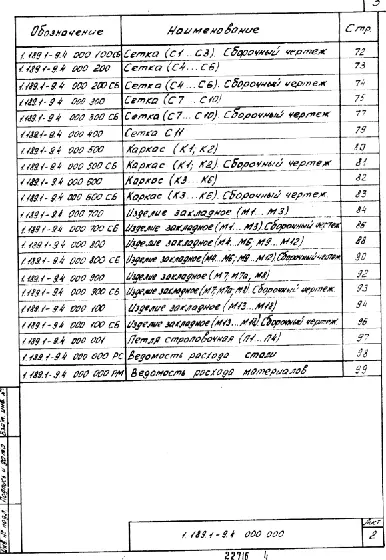 3
Обозначение Наименование Стр.
1.189.1-9.4 000 100СБ Сетка (С1...С3). Сборочный чертеж 72
1.189.1-9.4 000 200 Сетка (С4...С6) 73
1.189.1-9.4 000 200 СБ Сетка (С4...С6). Сборочный чертеж 74
1.189.1-9.4 000 300 Сетка (С7...С10) 75
1.189.1-9.4 000 300 СБ Сетка (С7...С10). Сборочный чертеж 77
1.189.1-9.4 000 400 Сетка С11 79
1.189.1-9.4 000 500 Каркас (К1, К2) 80
1.189.1-9.4 000 500 СБ Каркас (К1, К2). Сборочный чертеж 81
1.189.1-9.4 000 600 Каркас (К3...К6) 82
1.189.1-9.4 000 600 СБ Каркас (К3...К6). Сборочный чертеж. 83
1.189.1-9.4 000 700 Изделие закладное (М1...М3) 84
1.189.1-9.4 000 700 СБ Изделие закладное (М1...М3). Сборочный чертеж 86
1.189.1-9.4 000 800 Изделие закладное (М4...М6; М9...М12) 88
1.189.1-9.4 000 800 СБ Изделие закладное (М4...М6; М9...М12). Сборочный чертеж 90
1.189.1-9.4 000 900 Изделие закладное (М7, М7а, М8) 92
1.189.1-9.4 000 900 СБ Изделие закладное (М7, М7а, М8). Сборочный чертеж. 93
1.189.1-9.4 000 100 Изделие закладное (М13...М18) 94
1.189.1-9.4 000 100 СБ Изделие закладное (М13...М18). Сборочный чертеж 96
1.189.1-9.4 000 001 Петля строповочная (П1...П4) 97
1.189.1-9.4 000 000 РС Ведомость расхода стали 98
1.189.1-9.4 000 000 РМ Ведомость расхода материалов 99
Взам. инв. №
Подпись и дата
Инв. № подл.
1.189.1-9.4 000 000
Лист
2
22716 4